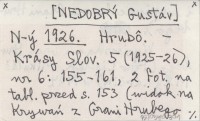 x [NEDOBRÝ Gustáv] x
N-ý 1926. Hrubô. –
Krásy Slov. 5 (1925-26),
nr 6: 155-161, 2 fot. na
tabl. przed s. 153 (widok na
Krywań z Grani Hrubego